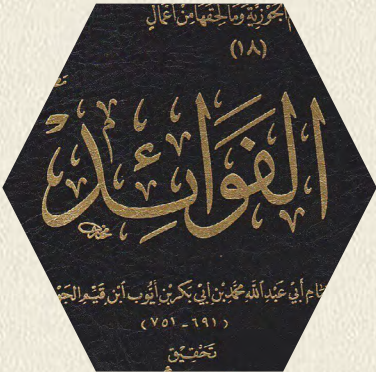 الجَوْزِيَّة وَمَا لَحِقَهَا مِنْ أَعْمَال
(١٨)
الفَوَائِد
أَبِي عَبْدِ اللَّهِ مُحَمَّدِ بْنِ أَبِي بَكْرِ بْنِ أَيُّوب ابْنِ قَيِّمِ
(٦٩١ - ٧٥١)
تَحْقِيق